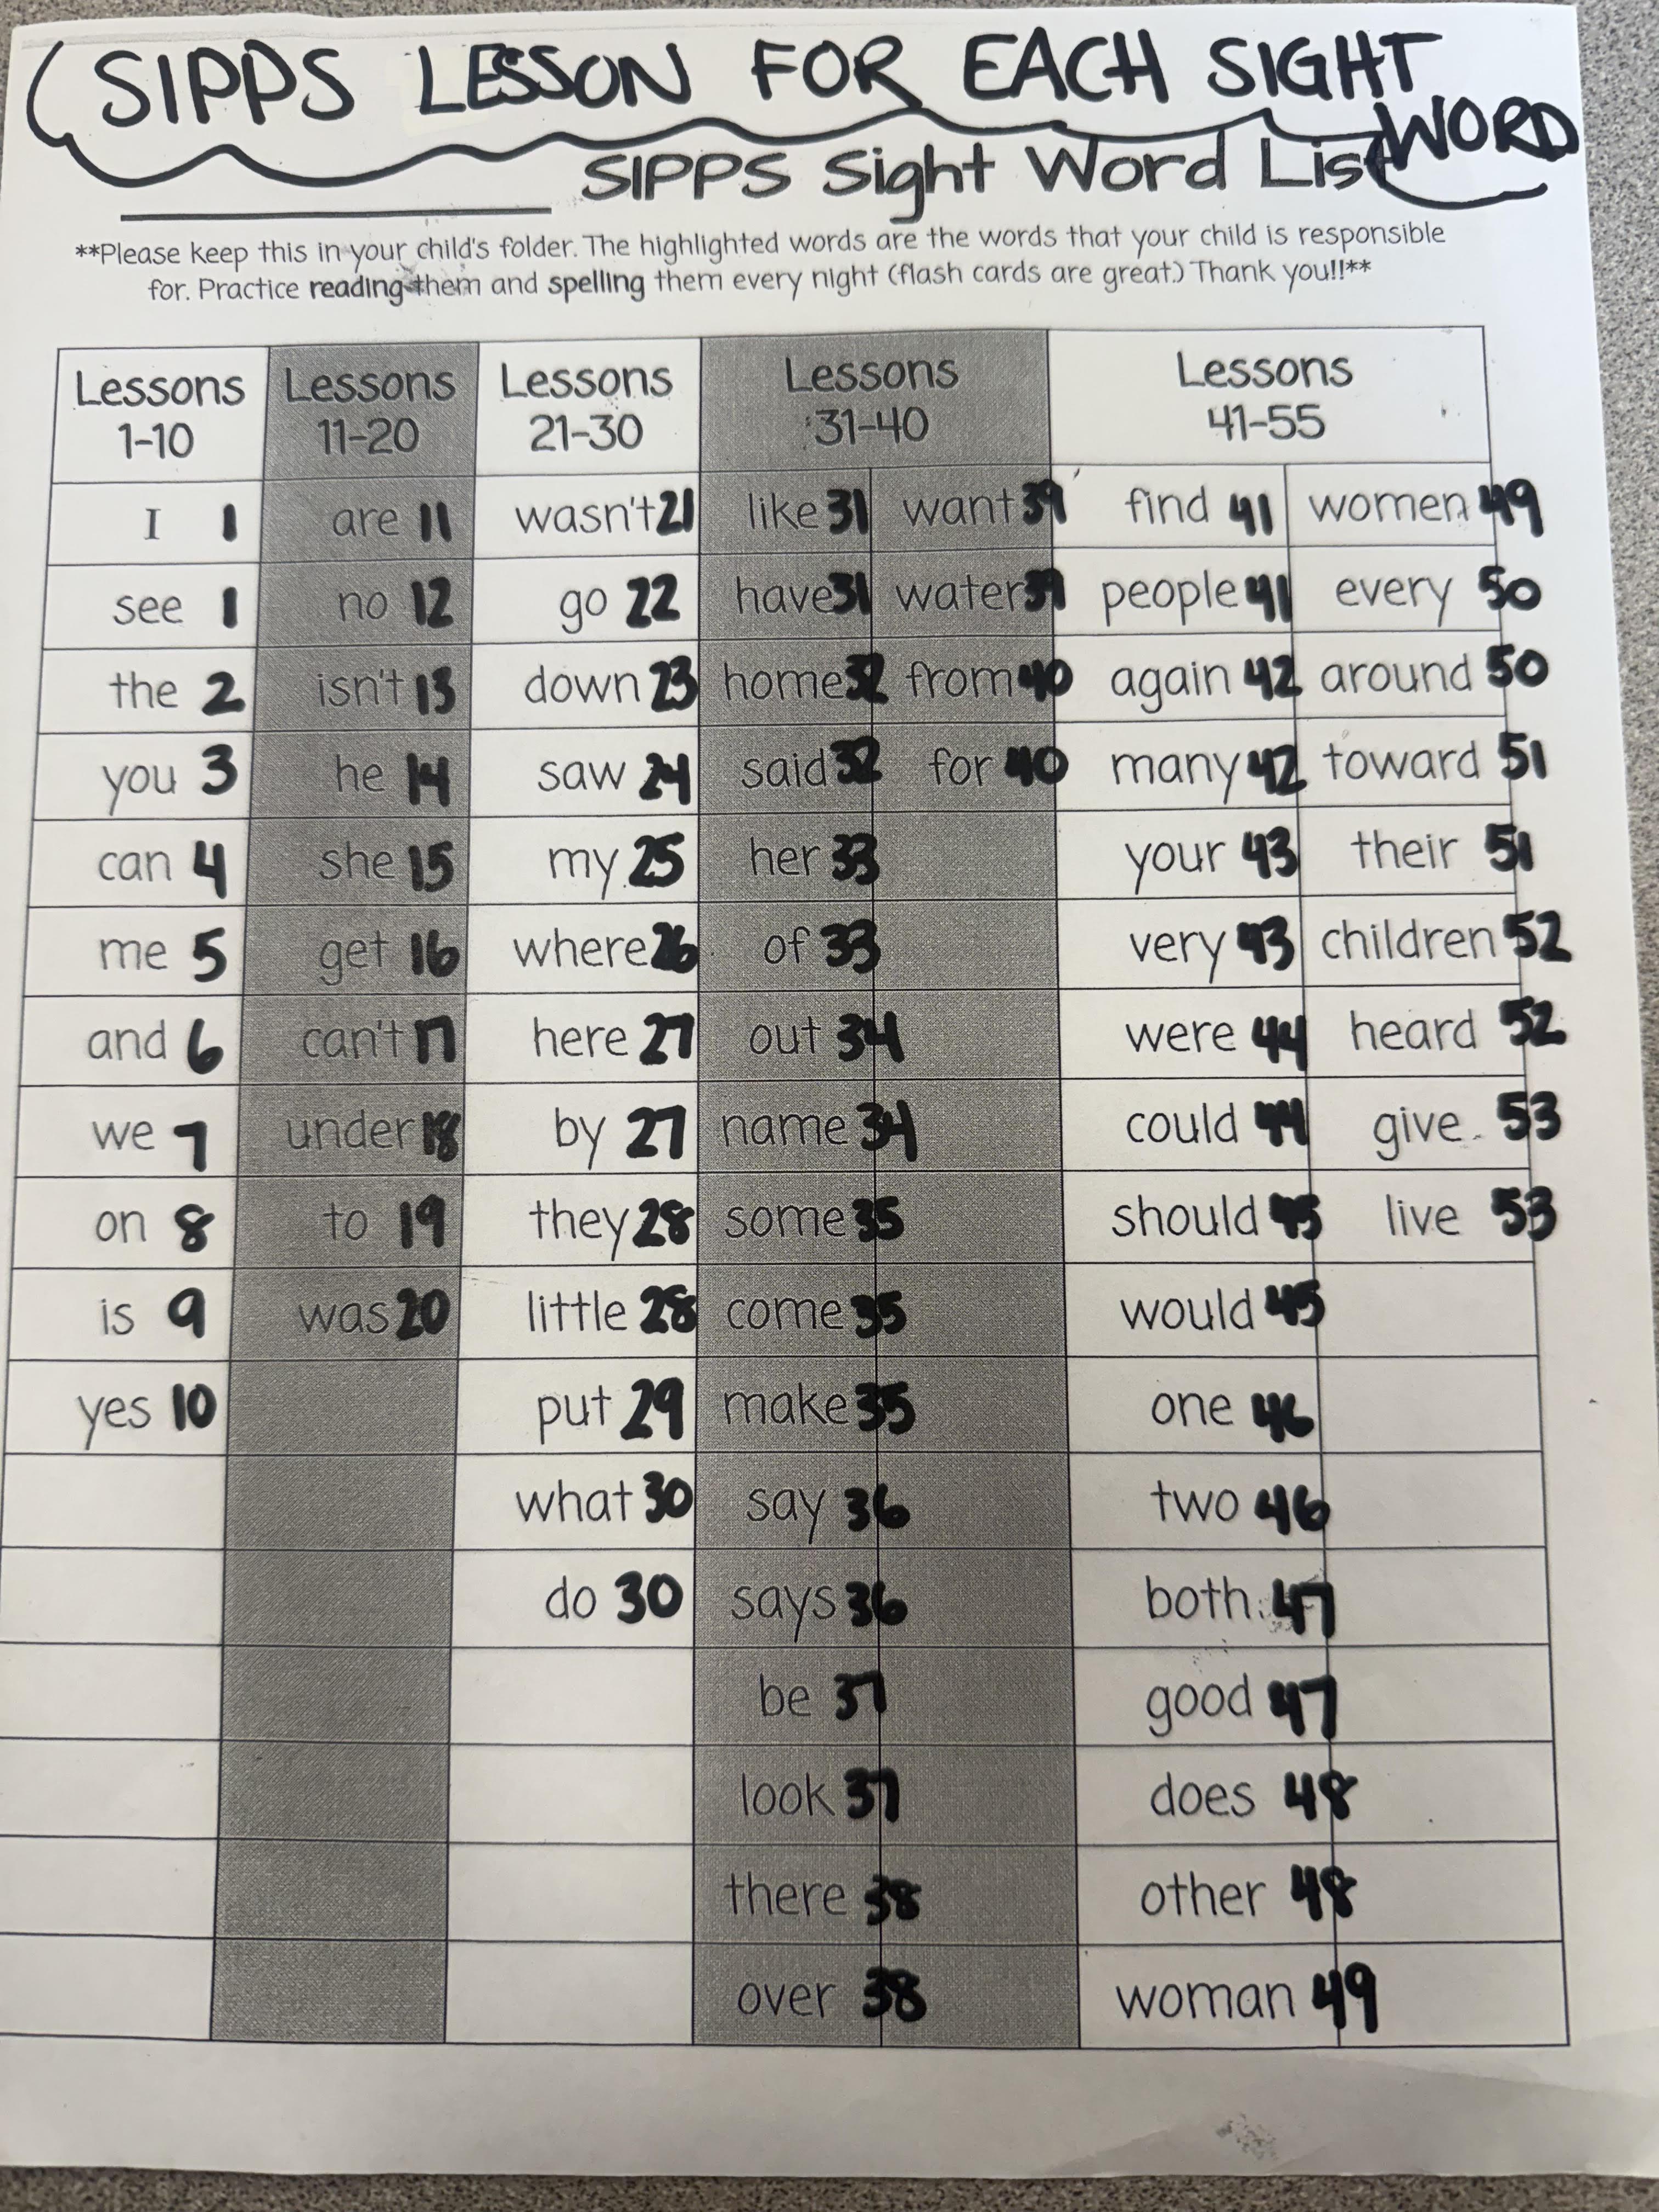 SIPPS LESSON FOR EACH SIGHT WORD
SIPPS Sight Word List
**Please keep this in your child's folder. The highlighted words are the words that your child is responsible
for. Practice reading them and spelling them every night (flash cards are great.) Thank you!!**
Lessons 1-10 Lessons 11-20 Lessons 21-30 Lessons 31-40 Lessons 41-55
I 1 are 11 wasn't 21 like 31 want 39 find 41 women 49
see 1 no 12 go 22 have 31 water 39 people 41 every 50
the 2 isn't 13 down 23 home 32 from 40 again 42 around 50
you 3 he 14 saw 24 said 32 for 40 many 42 toward 51
can 4 she 15 my 25 her 33 your 43 their 51
me 5 get 16 where 26 of 33 very 43 children 52
and 6 can't 17 here 27 out 34 were 44 heard 52
we 7 under 18 by 27 name 34 could 44 give 53
on 8 to 19 they 28 some 35 should 45 live 53
is 9 was 20 little 28 come 35 would 45
yes 10 put 29 make 35 one 46
what 30 say 36 two 46
do 30 says 36 both 47
be 37 good 47
look 37 does 48
there 38 other 48
over 38 woman 49